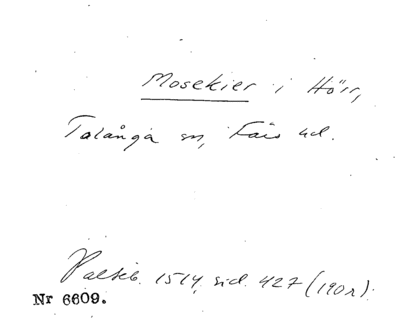 Mosekier i Hörr,
Talånga sn, Kåis hd.
Paltsb. 1514, sid. 427 (190 r).
Nr 6609.